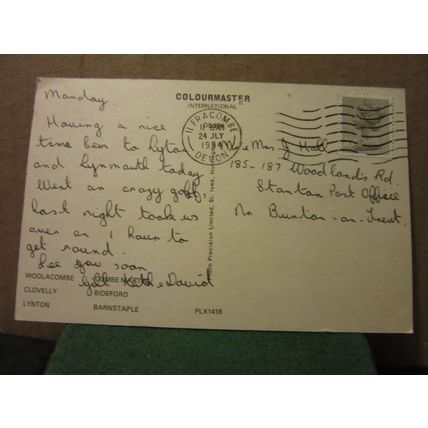 COLOURMASTER
INTERNATIONAL
Monday
Having a nice
time been to Lynton
and Lynmouth today
Went on crazy golf,
last night took us
over an 1 hour to
get round.
See you soon
Gill Keith & David
WOOLACOMBE COMBE MARTIN
CLOVELLY BIDEFORD
LYNTON BARNSTAPLE
PLX1418
Precision Limited, St. Ives,
ILFRACOMBE
24 JLY
1984
DEVON
Mr & Mrs J Hall
185-187 Woodlands Rd.
Stanton Post Office
Nr Burton-on-Trent.